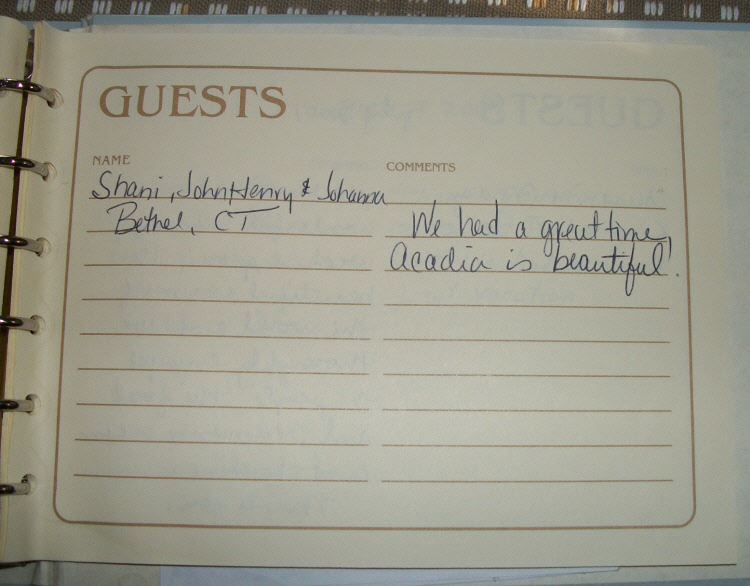 GUESTS
NAME
COMMENTS
Shani, JohnHenry & Johanna
Bethel, CT
We had a great time!
Acadia is beautiful!